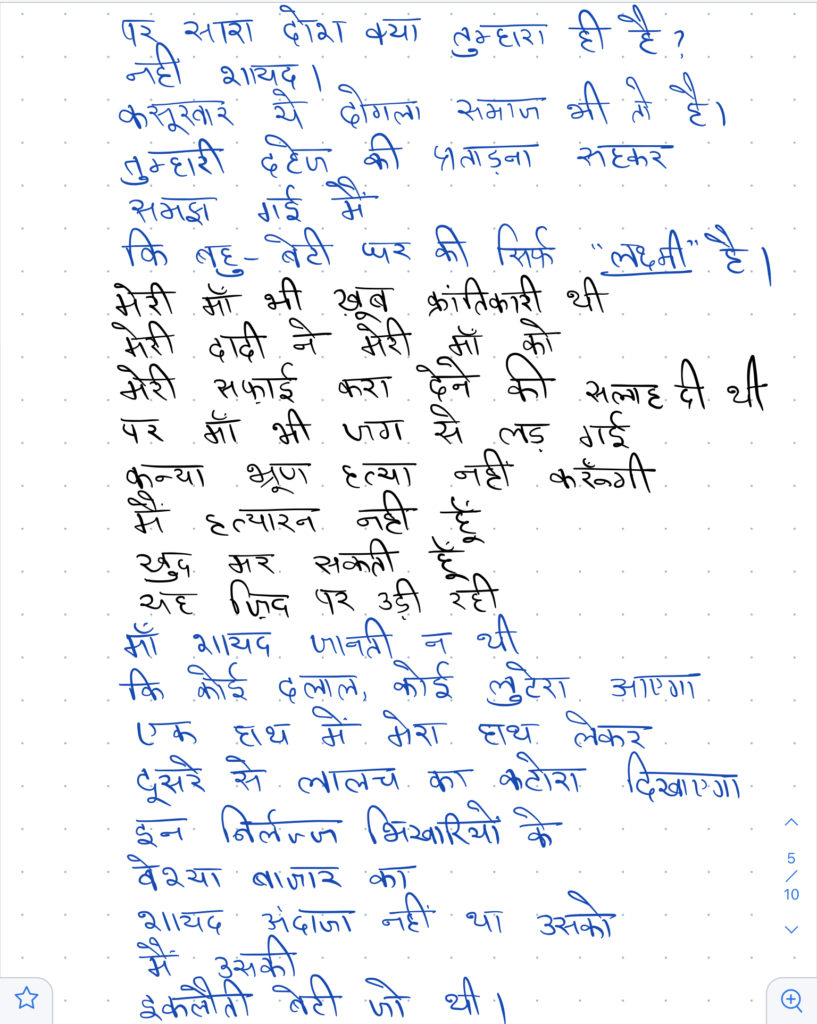 पर सारा दोश क्या तुम्हारा ही है?
नहीं शायद।
कसूरवार ये दोगला समाज भी तो है।
तुम्हारी दहेज की प्रताड़ना सहकर
समझ गई मैं
कि बहु-बेटी घर की सिर्फ "लक्ष्मी" है।
मेरी माँ भी ख़ूब क्रांतिकारी थी
मेरी दादी ने मेरी माँ को
मेरी सफ़ाई करा देने की सलाह दी थी
पर माँ भी जग से लड़ गई
कन्या भ्रूण हत्या नहीं करूँगी
मैं हत्यारन नही हूँ
खुद मर सकती हूँ
यह ज़िद पर उड़ी रही
माँ शायद जानती न थी
कि कोई दलाल, कोई लुटेरा आएगा
एक हाथ में मेरा हाथ लेकर
दूसरे से लालच का कटोरा दिखाएगा
इन निर्लज्ज भिखारियों के
वेश्या बाजार का
शायद अंदाजा नहीं था उसको
मैं उसकी
इकलौती बेटी जो थी।
5
/
10